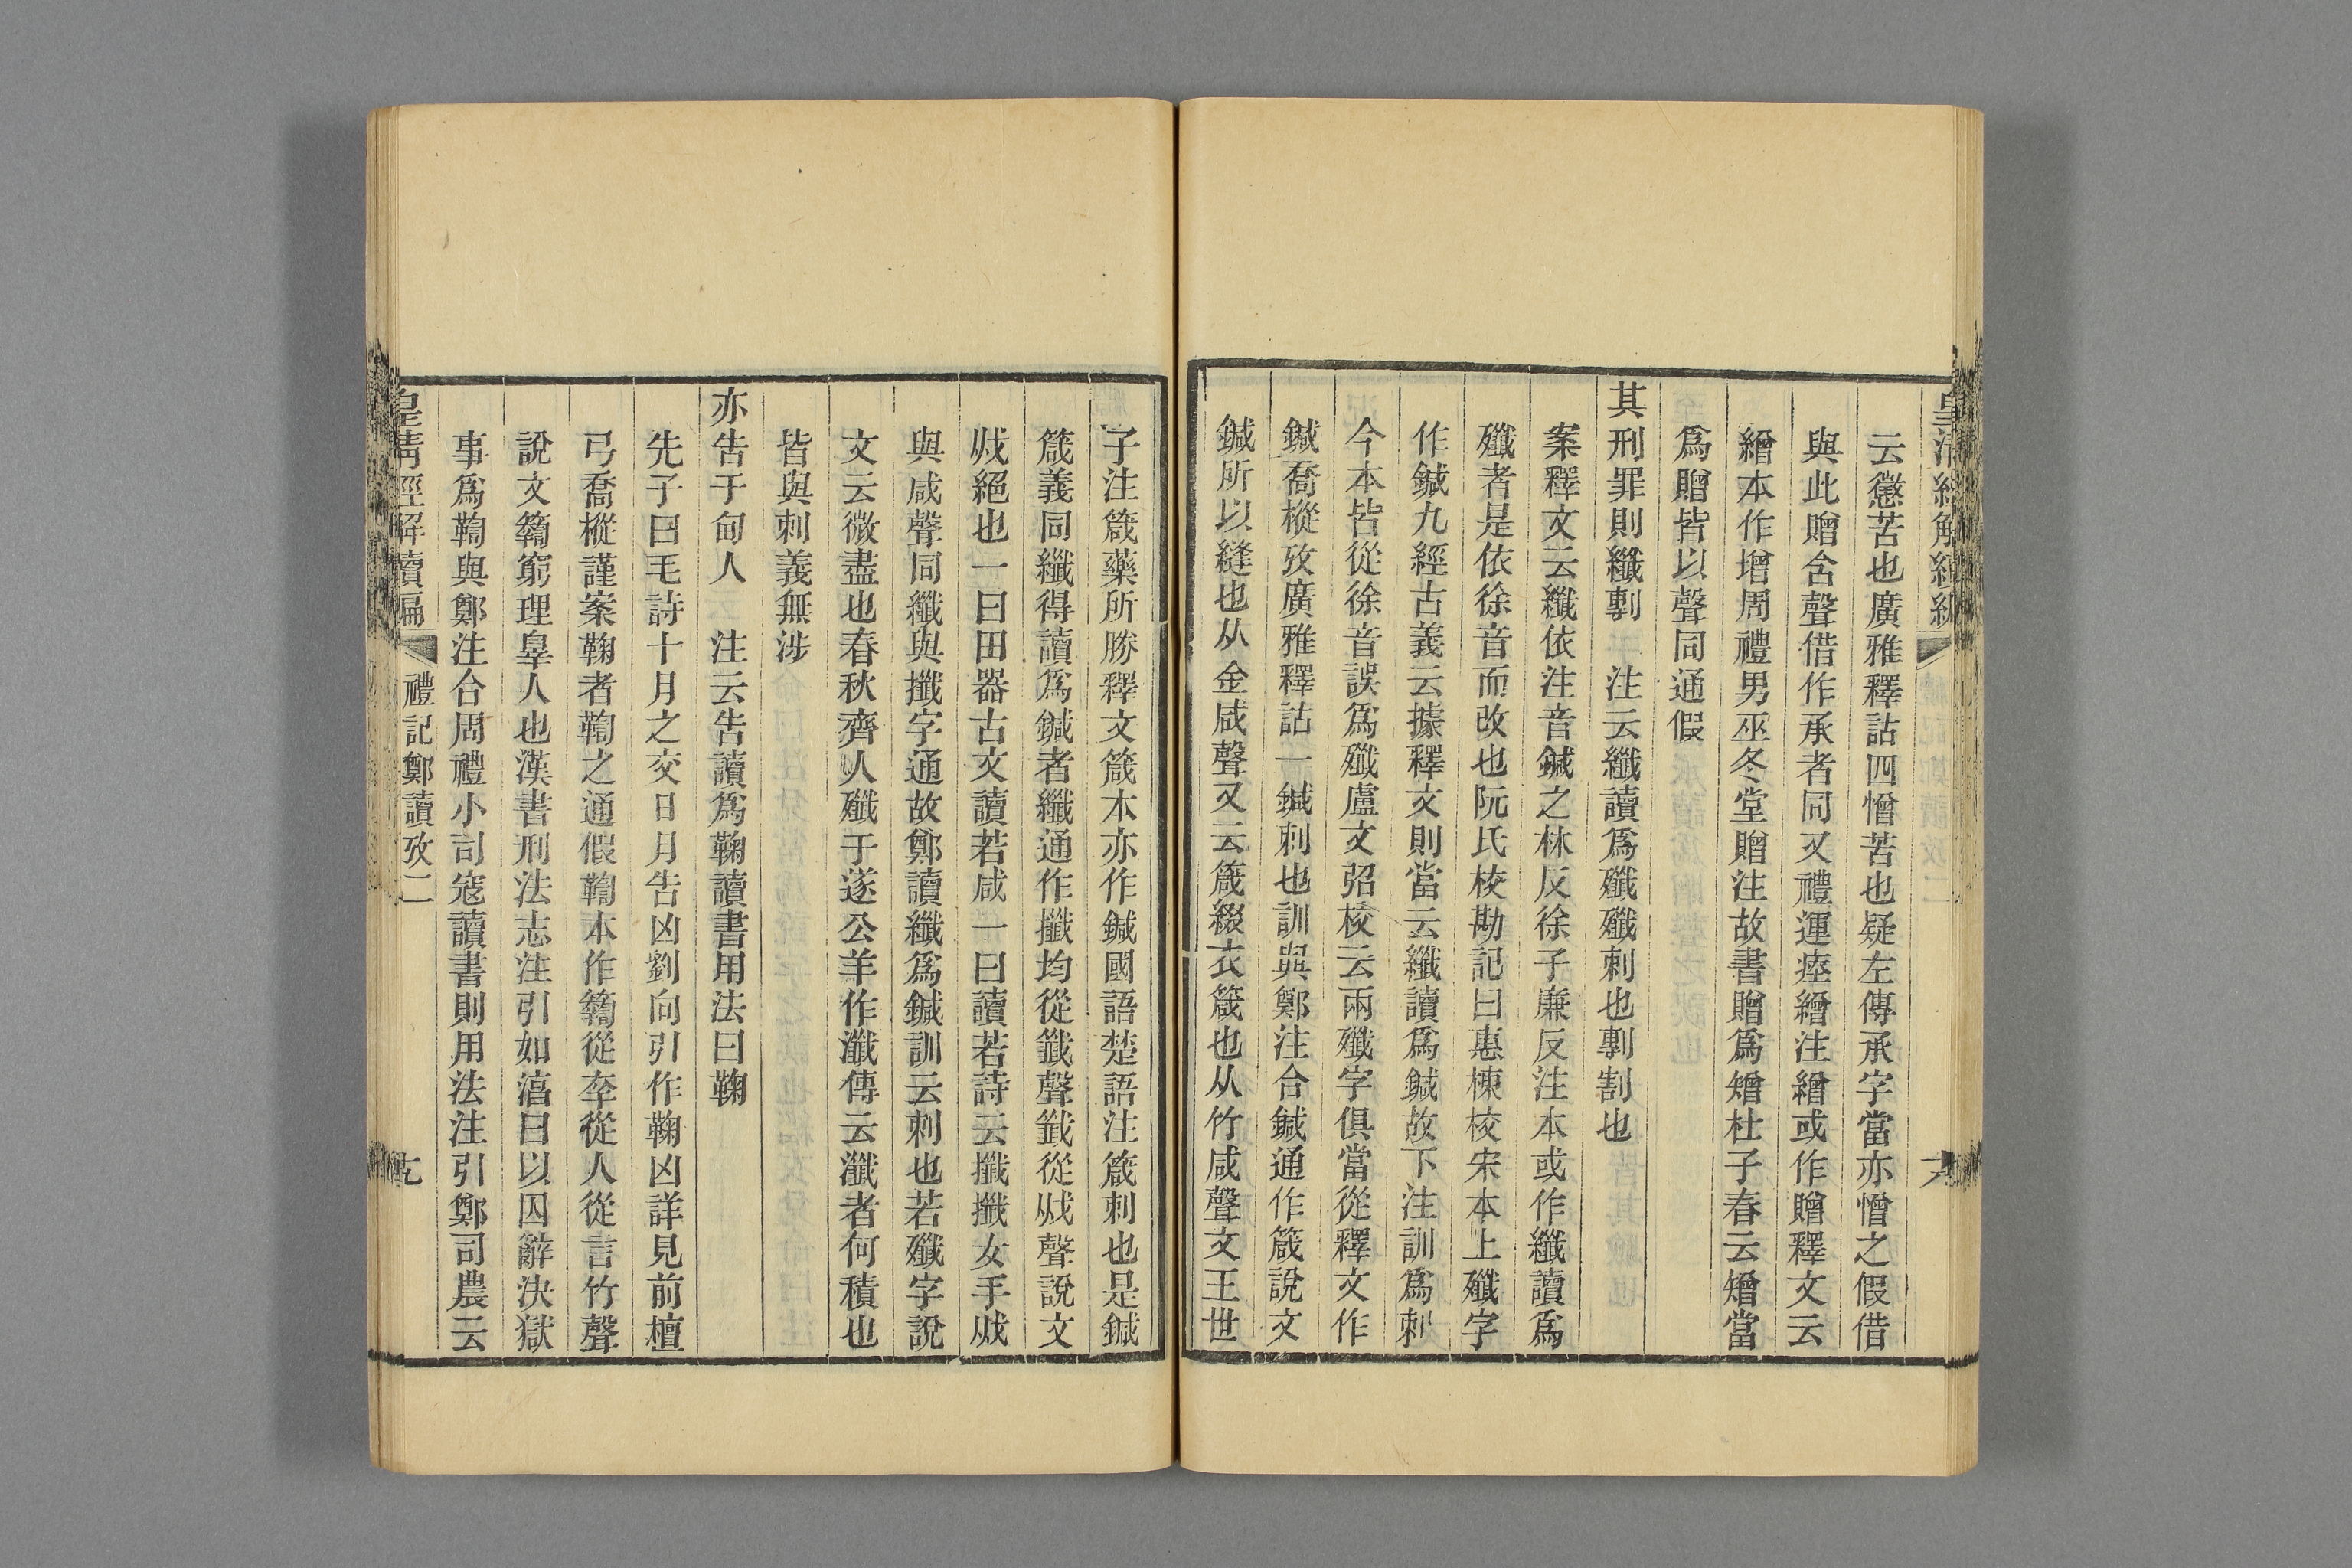 云懲苦也廣雅釋詁四憎苦也疑左傳承字當亦憎之假借
與此贈含聲借作承者同又禮運瘞繒注繒或作贈釋文云
繒本作增周禮男巫冬堂贈注故書贈爲矰杜子春云矰當
爲贈皆以聲同通假
其刑罪則纖剸 注云纖讀爲殲殲刺也剸割也
案釋文云纖依注音鍼之林反徐子廉反注本或作纖讀爲
殲者是依徐音而改也阮氏校勘記曰惠棟校宋本上殲字
作鍼九經古義云據釋文則當云纖讀爲鍼故下注訓爲刺
今本皆從徐音誤爲殲盧文弨校云兩殲字俱當從釋文作
鍼喬樅攷廣雅釋詁一鍼刺也訓與鄭注合鍼通作箴說文
鍼所以縫也从金咸聲又云箴綴衣箴也从竹咸聲文王世
子注箴藥所勝釋文箴本亦作鍼國語楚語注箴刺也是鍼
箴義同纖得讀爲鍼者纖通作攕均從韱聲韱從㦰聲說文
㦰絕也一曰田器古文讀若咸一曰讀若詩云攕攕女手㦰
與咸聲同纖與攕字通故鄭讀纖爲鍼訓云刺也若殲字說
文云微盡也春秋齊人殲于遂公羊作瀸傳云瀸者何積也
皆與刺義無涉
亦告于甸人 注云告讀爲鞠讀書用法曰鞠
先子曰毛詩十月之交日月告凶劉向引作鞠凶詳見前檀
弓喬樅謹案鞠者鞫之通假鞫本作䉤從㚔從人從言竹聲
說文䉤窮理辠人也漢書刑法志注引如湻曰以囚辭決獄
事爲鞫與鄭注合周禮小司寇讀書則用法注引鄭司農云
皇清經解續編 禮記鄭讀攷二